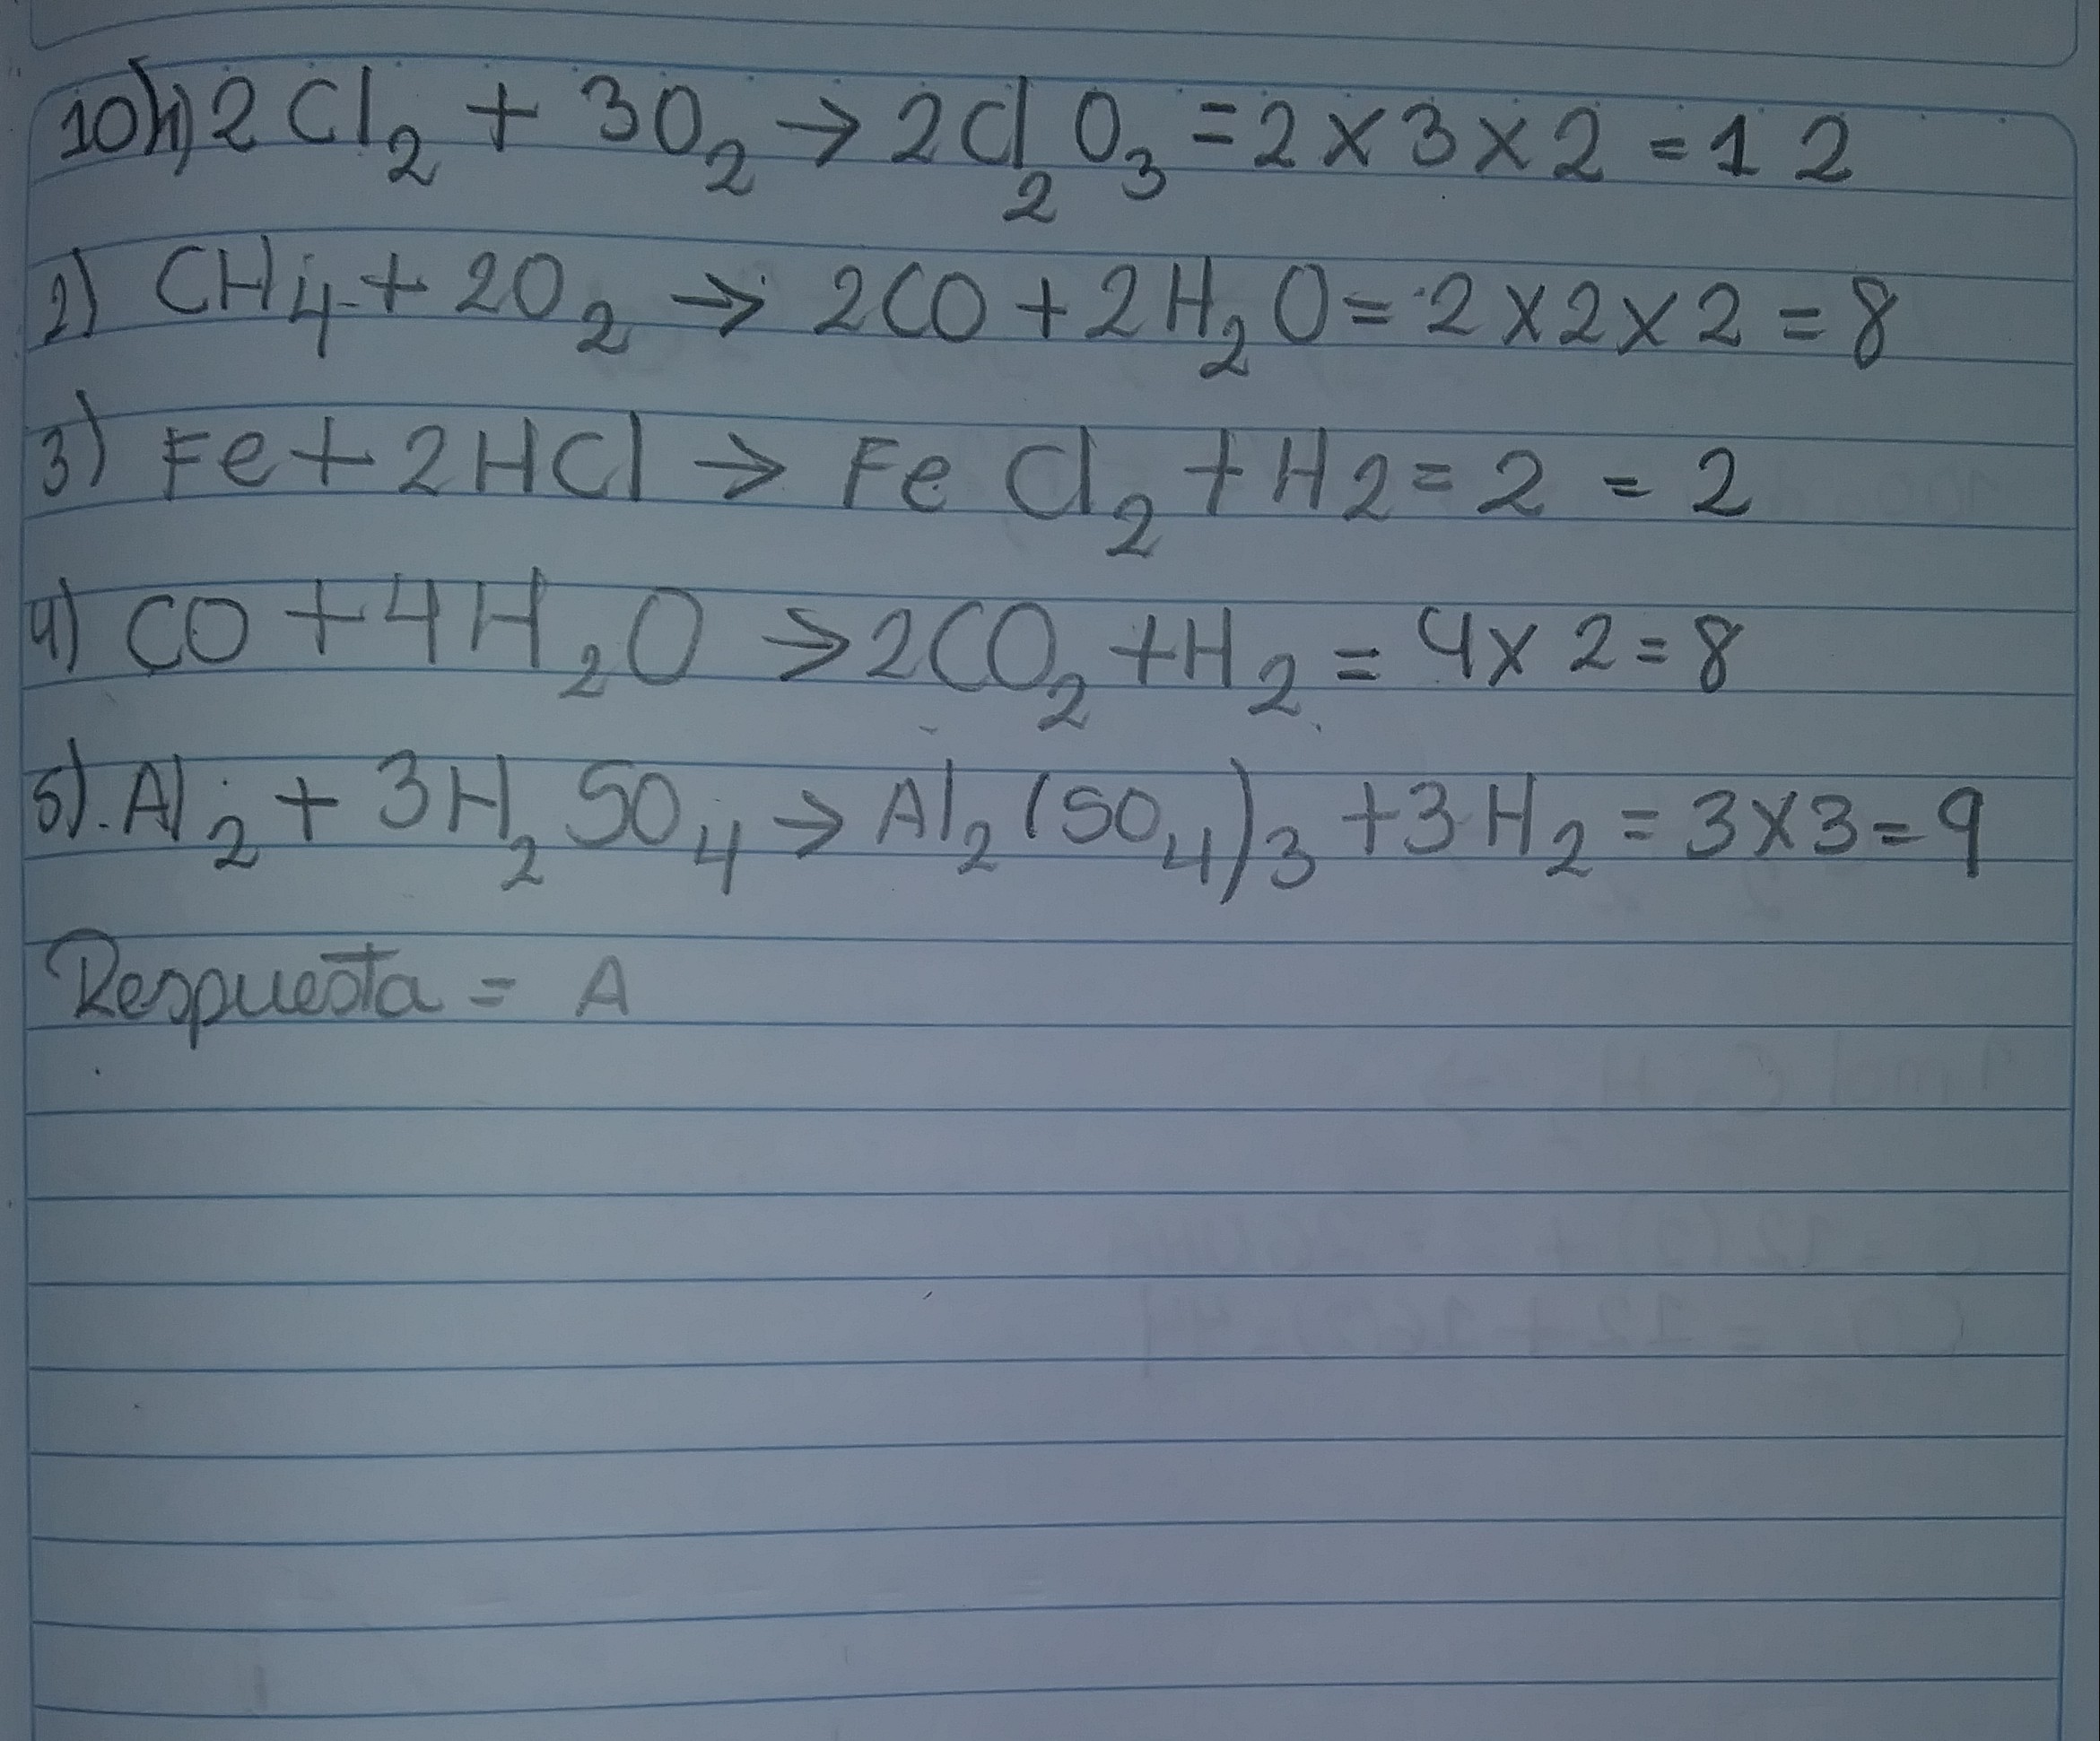 10) 1) 2Cl₂ + 3O₂ → 2Cl₂O₃ = 2 x 3 x 2 = 12
2) CH₄ + 2O₂ → 2CO + 2H₂O = 2 x 2 x 2 = 8
3) Fe + 2HCl → FeCl₂ + H2 = 2 = 2
4) CO + 4H₂O → 2CO₂ + H₂ = 4 x 2 = 8
5). Al₂ + 3H₂SO₄ → Al₂(SO₄)₃ + 3H₂ = 3 x 3 = 9
Respuesta = A